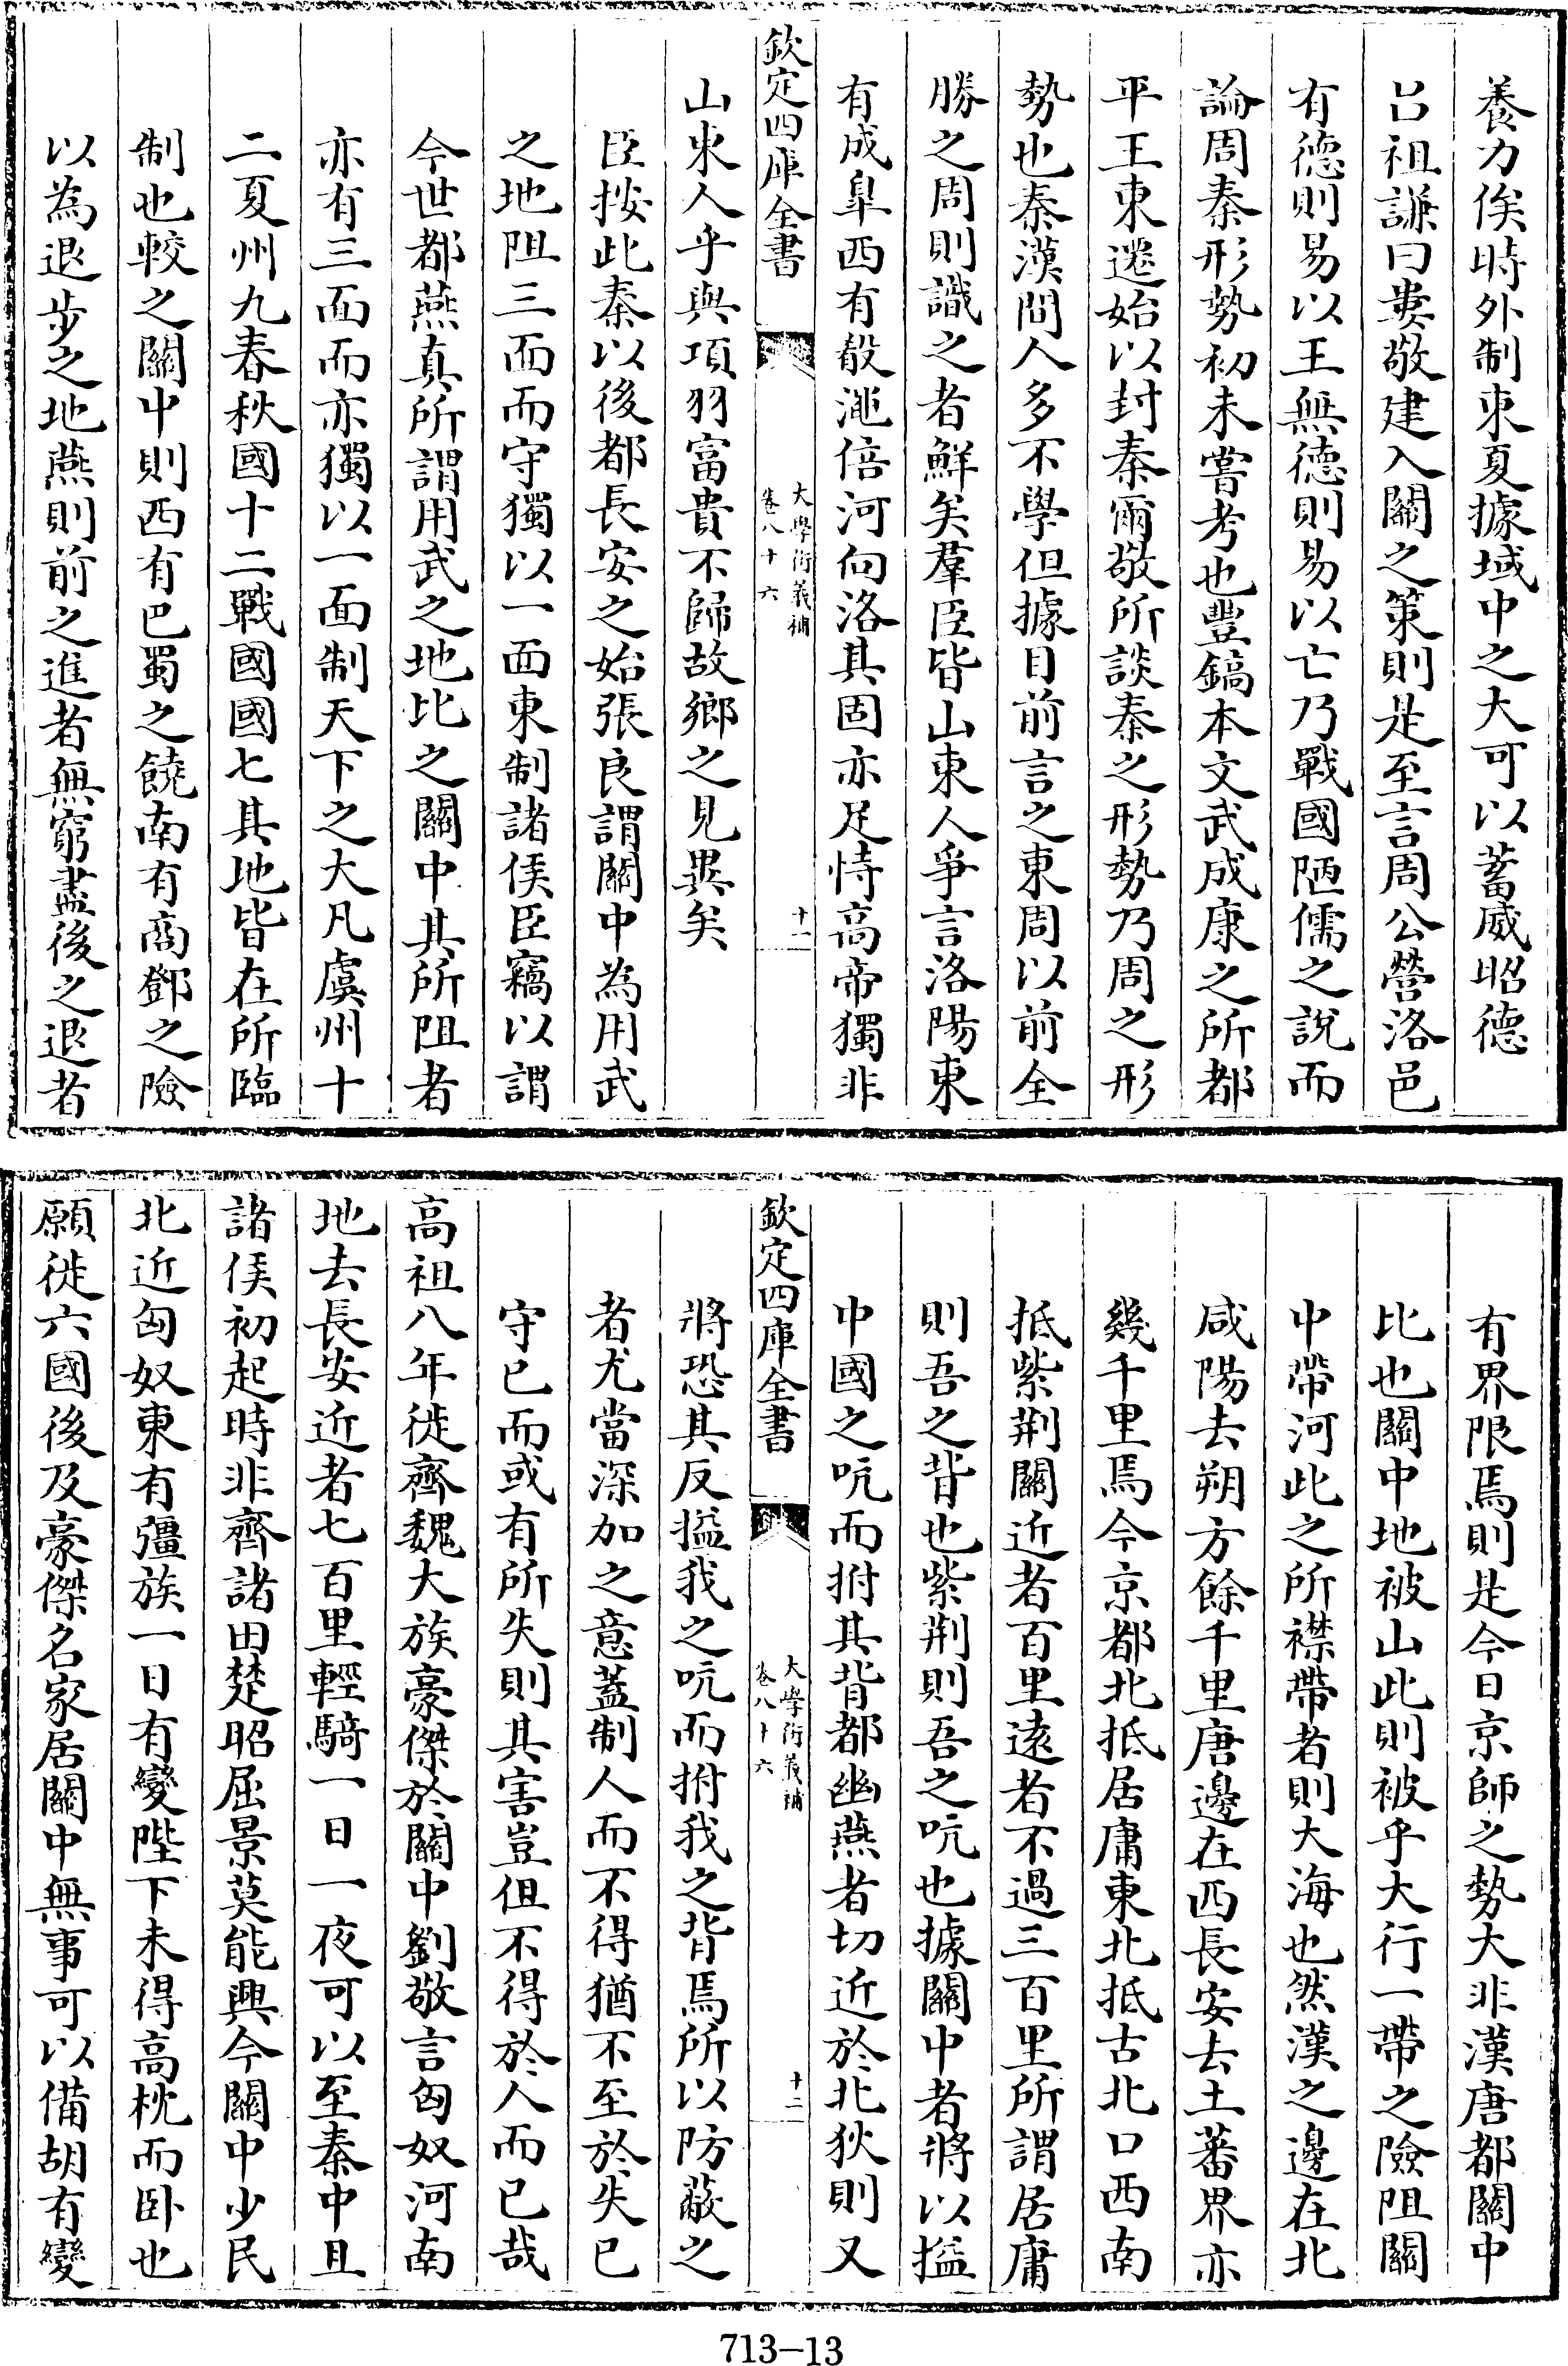 養力俟時外制東夏據域中之大可以蓄威昭德
吕祖謙曰婁敬建入關之策則是至言周公營洛邑
有德則易以王無德則易以亡乃戰國陋儒之說而
論周秦形勢初未嘗考也豐鎬本文武成康之所都
平王東遷始以封秦爾敬所談秦之形勢乃周之形
勢也秦漢間人多不學但據目前言之東周以前全
勝之周則識之者鮮矣羣臣皆山東人爭言洛陽東
有成臯西有殽澠倍河向洛其固亦足恃高帝獨非
欽定四庫全書
大學衍義補
卷八十六
十一
山東人乎與項羽富貴不歸故鄉之見異矣
臣按此秦以後都長安之始張良謂關中為用武
之地阻三面而守獨以一面東制諸侯臣竊以謂
今世都燕真所謂用武之地比之關中其所阻者
亦有三面而亦獨以一面制天下之大凡虞州十
二夏州九春秋國十二戰國國七其地皆在所臨
制也較之關中則西有巴蜀之饒南有商鄧之險
以為退步之地燕則前之進者無窮盡後之退者
有界限焉則是今日京師之勢大非漢唐都關中
比也關中地被山此則被乎大行一帶之險阻關
中帶河此之所襟帶者則大海也然漢之邊在北
咸陽去朔方餘千里唐邊在西長安去土蕃界亦
幾千里焉今京都北抵居庸東北抵古北口西南
抵紫荆關近者百里遠者不過三百里所謂居庸
則吾之背也紫荆則吾之吭也據關中者將以搤
中國之吭而拊其背都幽燕者切近於北狄則又
欽定四庫全書
大學衍義補
卷八十六
十二
將恐其反搤我之吭而拊我之背焉所以防蔽之
者尤當深加之意蓋制人而不得猶不至於失已
守已而或有所失則其害豈但不得於人而已哉
高祖八年徙齊魏大族豪傑於關中劉敬言匈奴河南
地去長安近者七百里輕騎一日一夜可以至秦中且
諸侯初起時非齊諸田楚昭屈景莫能興今關中少民
北近匈奴東有彊族一日有變陛下未得高枕而卧也
願徙六國後及豪傑名家居關中無事可以備胡有變
713-13